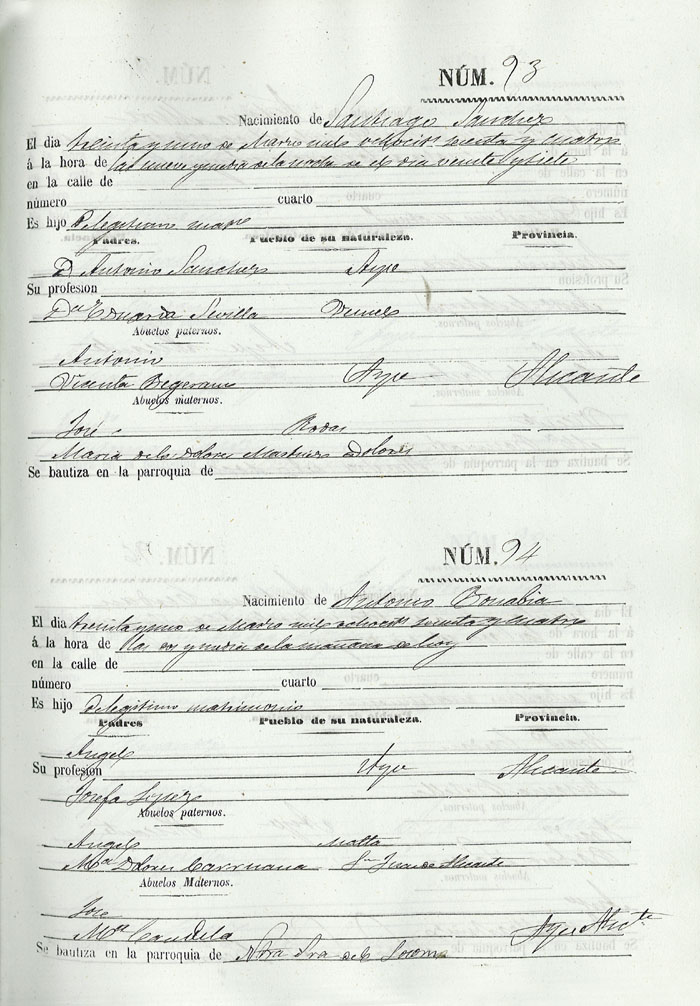 NÚM. 93
Nacimiento de Santiago Sanchez
El dia treinta y uno de Marzo mil ochoc.tos setenta y cuatro
á la hora de las nueve y media de la noche de el dia veinte y siete
en la calle de
número cuarto
Es hijo de legitimo matr.o
Padres. Pueblo de su naturaleza. Provincia.
D Antonio Sanchez Aspe
Su profesion
D.a Eduarda Sevilla
Abuelos paternos.
Antonio
Vicenta Aspe Alicante
Abuelos maternos.
José
Maria de los Dolores Martinez
Se bautiza en la parroquia de
NÚM. 94
Nacimiento de Antonio Bonabia
El dia treinta y uno de Marzo mil ochoc.tos setenta y cuatro
á la hora de las y media de la mañana de hoy
en la calle de
número cuarto
Es hijo de legitimo matrimonio
Padres Pueblo de su naturaleza. Provincia.
Angel
Su profesion Aspe Alicante
Josefa Lopez
Abuelos paternos.
Angel
M.a Dolores Carruana S.n Juan de Alicante
Abuelos Maternos.
José
M.a Candela
Se bautiza en la parroquia de Ntra Sra del Socorro